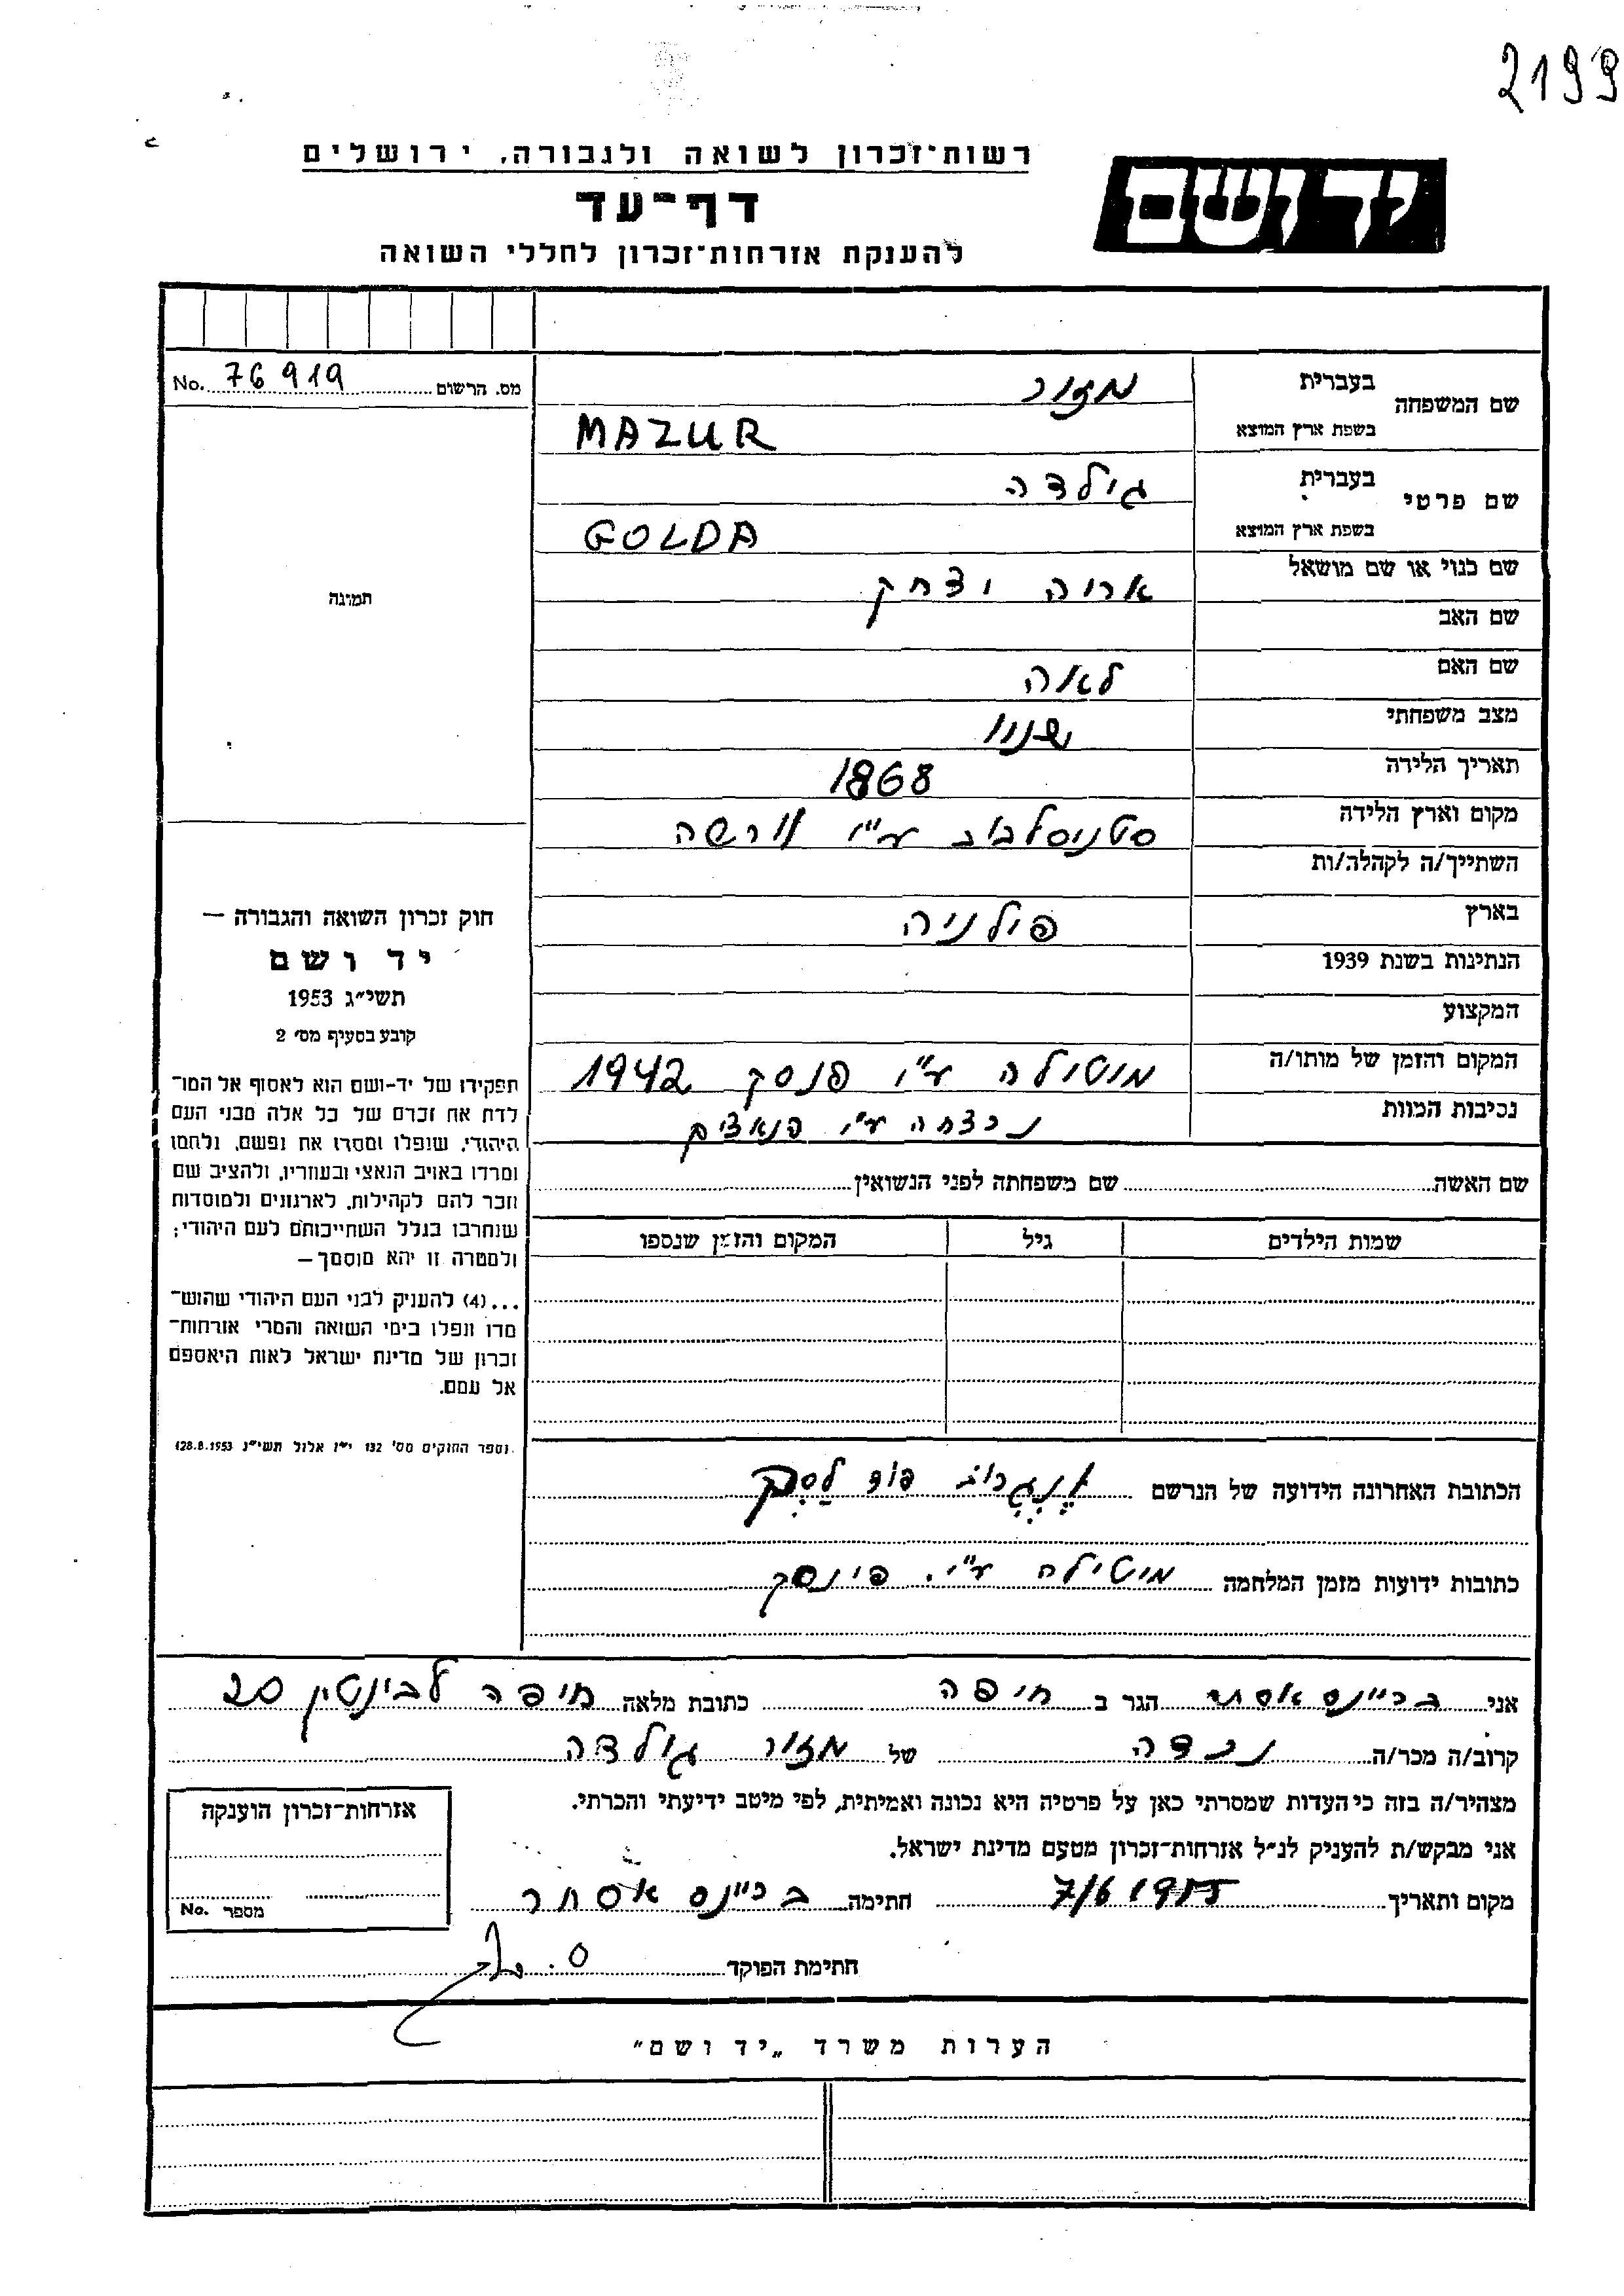 2199
רשות־זכרון לשואה ולגבורה, ירושלים
יד ושם
דף־עד
להענקת אזרחות־זכרון לחללי השואה
מס. הרשום No. 76919
תמונה
שם המשפחה בעברית מזור
בשפת ארץ המוצא MAZUR
שם פרטי בעברית גילדה
בשפת ארץ המוצא GOLDA
שם כנוי או שם מושאל אריה יצחק
שם האב
שם האם לאה
מצב משפחתי
תאריך הלידה 1868
מקום וארץ הלידה סטניסלבוב ע"י וורשה
השתייך/ה לקהלה/ות
בארץ פולניה
הנתינות בשנת 1939
המקצוע
המקום והזמן של מותו/ה מוטילה ע"י פנסק 1942
נסיבות המוות נרצחה ע"י הנאצים
שם האשה שם משפחתה לפני הנשואין
שמות הילדים גיל המקום והזמן שנספו
חוק זכרון השואה והגבורה —
יד ושם
תשי״ג 1953
קובע בסעיף מס׳ 2
תפקידו של יד-ושם הוא לאסוף אל המו־
לדת את זכרם של כל אלה מבני העם
היהודי, שנפלו ומסרו את נפשם, נלחמו
ומרדו באויב הנאצי ובעוזריו, ולהציב שם
וזכר להם לקהילות, לארגונים ולמוסדות
שנחרבו בגלל השתייכותם לעם היהודי;
ולמטרה זו יהא מוסמך—
...(4) להעניק לבני העם היהודי שהוש־
מדו ונפלו בימי השואה והמרי אזרחות־
זכרון של מדינת ישראל לאות היאספם
אל עמם.
(ספר החוקים מס׳ 132 י״ז אלול תשי״ג 28.8.1953)
הכתובת האחרונה הידועה של הנרשם
כתובות ידועות מזמן המלחמה מוטילה ע"י. פינסק
אני בריינס אסתר הגר ב חיפה כתובת מלאה חיפה לבינטין 20
קרוב/ה מכר/ה נכדה של מזור גולדה
מצהיר/ה בזה כי העדות שמסרתי כאן על פרטיה היא נכונה ואמיתית, לפי מיטב ידיעתי והכרתי.
אני מבקש/ת להעניק לנ״ל אזרחות־זכרון מטעם מדינת ישראל.
מקום ותאריך 7/6 1955 חתימה בריינס אסתר
חתימת הפוקד
אזרחות־זכרון הוענקה
מספר No.
הערות משרד „יד ושם״